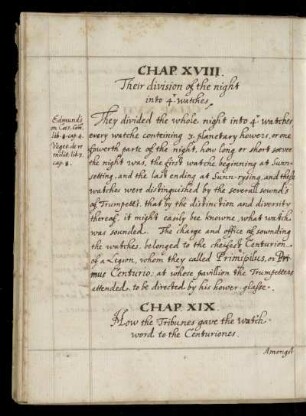 CHAP. XVIII.
Their division of the night
into 4 watches.
Edmunds
in Cæs. Com.
lib. 8. cap. 4.
Veget. de re
milit. lib. 3.
cap. 8.
They divided the whole night into 4 watches
every watche conteining 3. planetary howers, or one
fowerth parte of the night, how long or short soever
the night was, the first watche beginning at Sunn-
setting, and the last ending at Sunn-rysing, and these
watches were distinguished by the severall sounds
of Trumpetts, that by the distinction and diversity
thereof, it might easily bee knowne, what watch
was sounded. The charge and office of sounding
the watches, belonged to the cheifest Centurion
of a Legion, whom they called Primipilus, or Pri-
mus Centurio, at whose pavillion the Trumpetters
attended, to be directed by his hower-glasse.
CHAP. XIX.
How the Tribunes gave the Watch-
word to the Centuriones.
Amongst